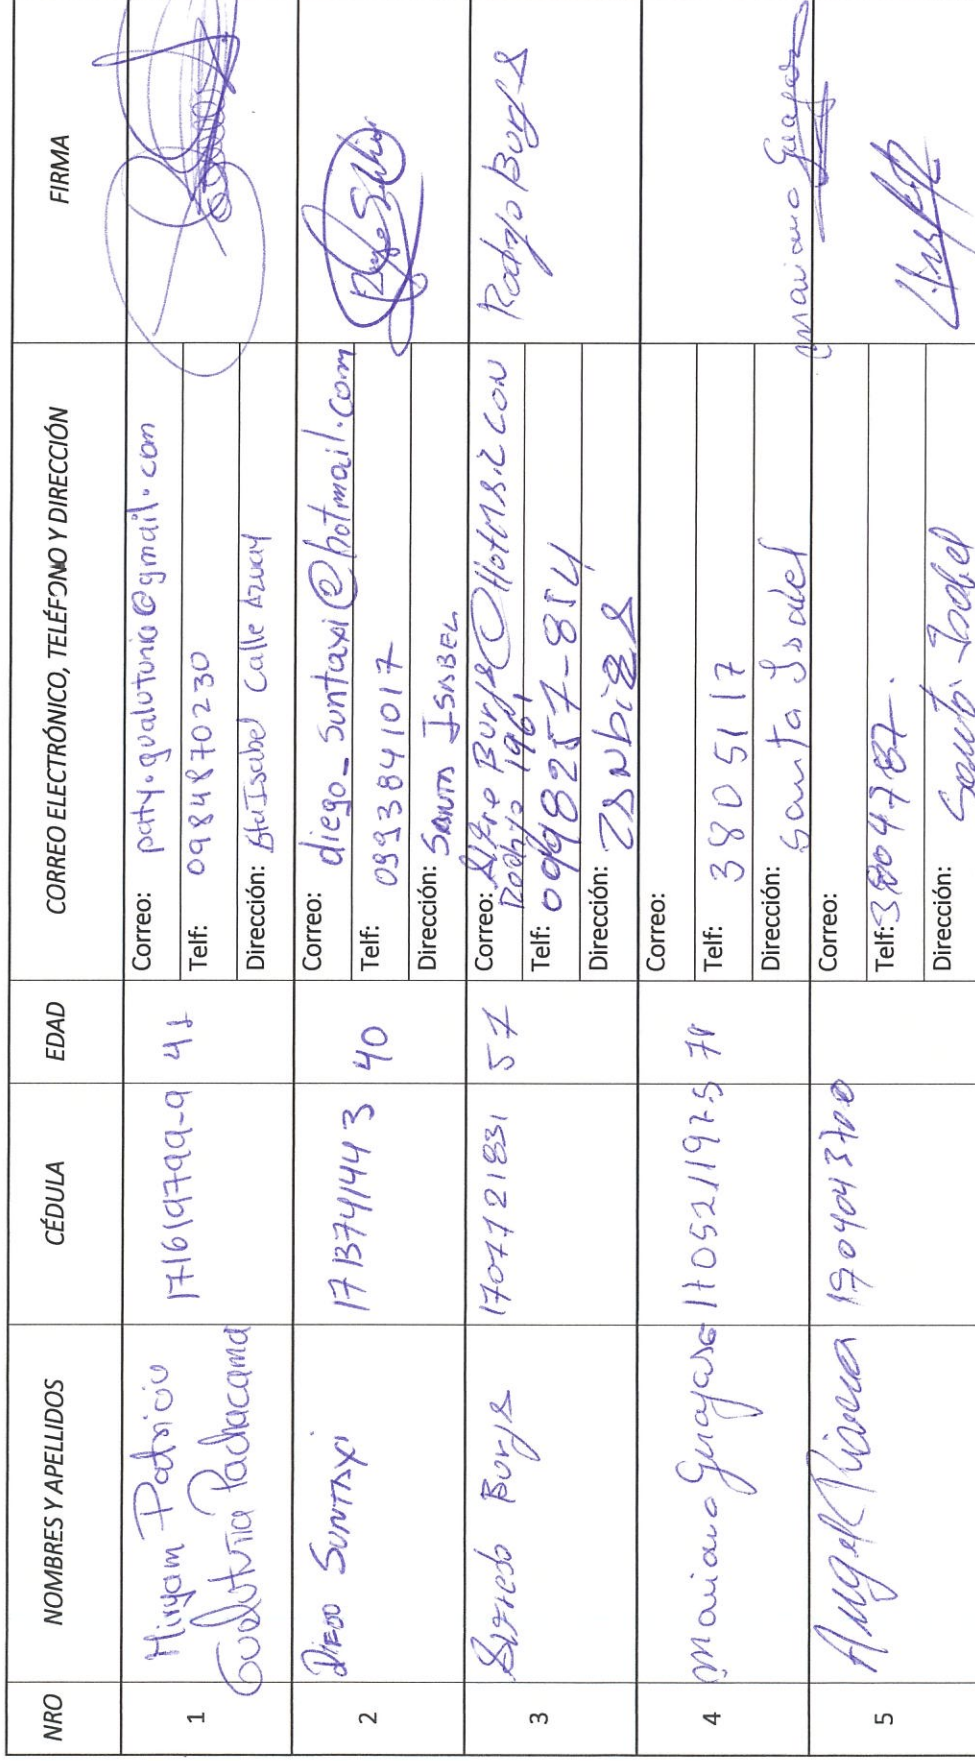 NRO NOMBRES Y APELLIDOS CÉDULA EDAD CORREO ELECTRÓNICO, TELÉFONO Y DIRECCIÓN FIRMA
1
Miryam Patricia
Gualutuña Pachacama
171619799-9
41
Correo: paty.gualutunia@gmail.com
Telf: 0984870230
Dirección: Sta Isabel Calle Azuay
2
Diego Suntaxi
1713741443
40
Correo: diego_suntaxi@hotmail.com
Telf: 0993841017
Dirección: Santa Isabel
3
Alfredo Borja
1707721831
57
Correo:
Telf:
Dirección:
Rodrigo Borja
4
Mariano Guajaro
1705211975
Correo:
Telf: 3805117
Dirección: Santa Isabel
Mariano Guajaro
5
Angel
Correo:
Telf:
Dirección: Santa Isabel